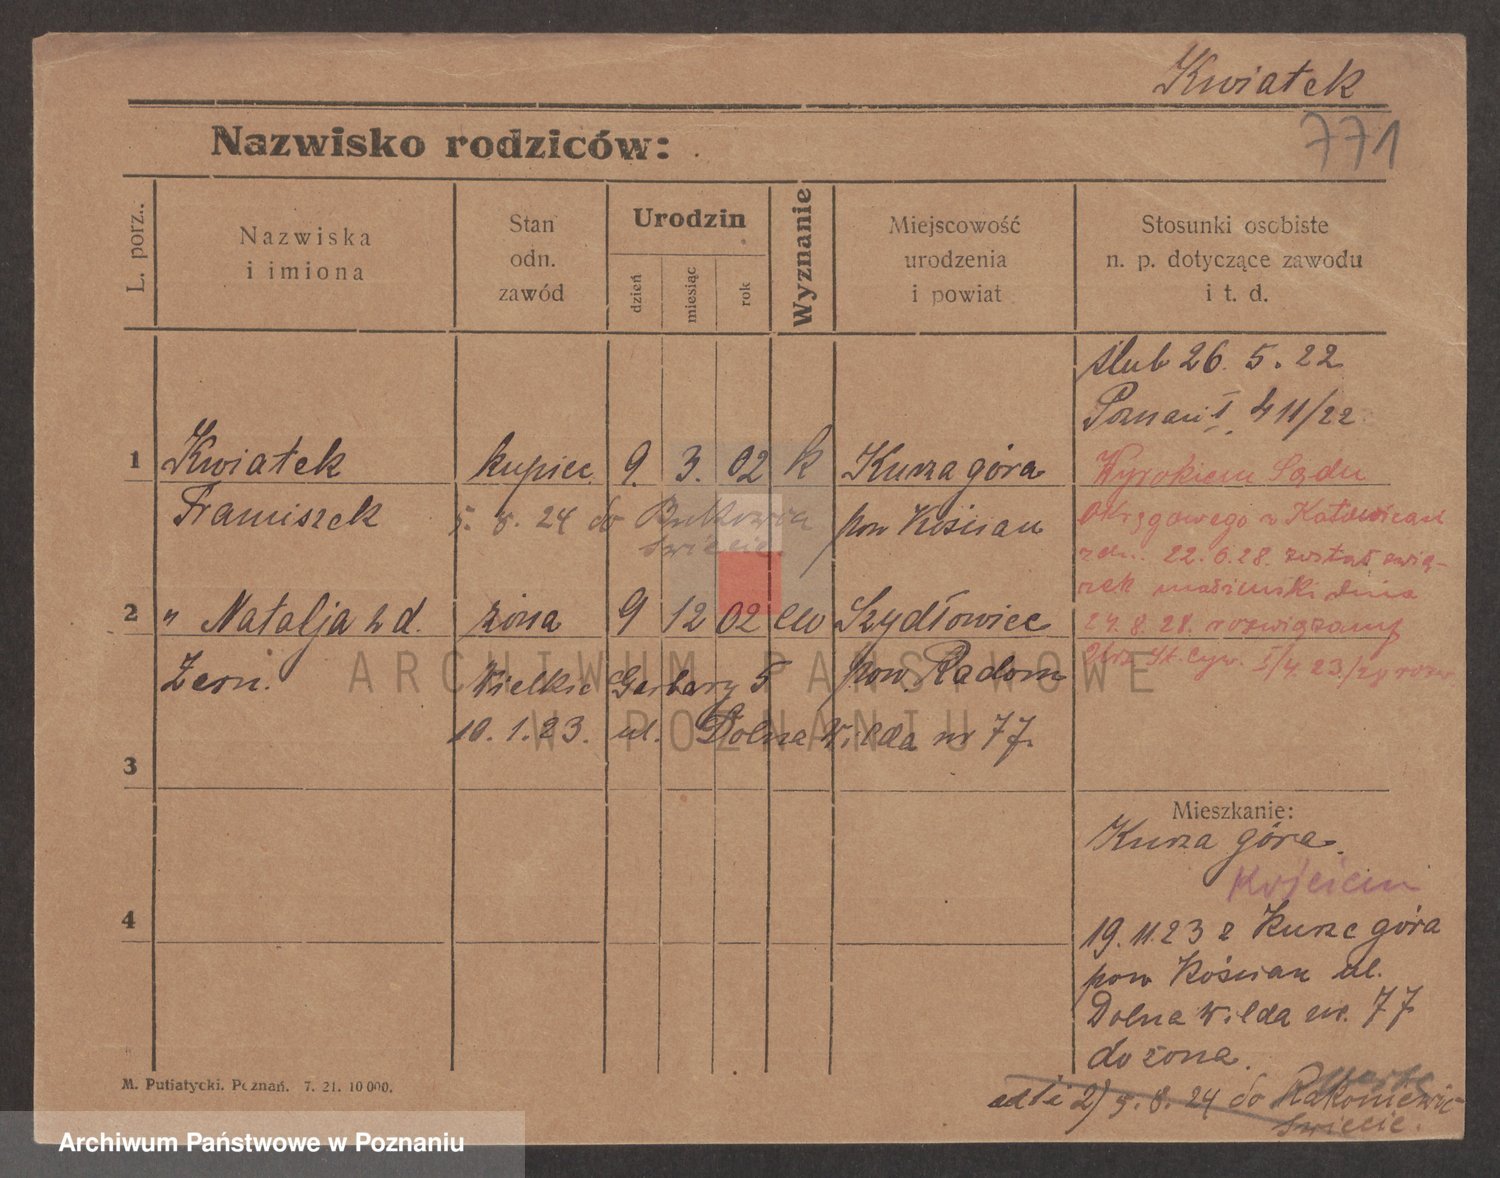 Kwiatek
771
Nazwisko rodziców:
L. porz..
Nazwiska
i imiona
Stan
odn.
zawód
Urodzin
dzień
miesiąc
rok
Wyznanie
Miejscowość
urodzenia
i powiat
Stosunki osobiste
n. p. dotyczące zawodu
i t. d.
ślub 26. 5. 22
Poznań I, 411/22
1 Kwiatek kupiec 9. 3. 02 k Kurza góra
Franciszek
5. 8. 24 do
pow Kościan
Wyrokiem Sądu
Okręgowego w Katowicach
z dn. 22.6.28. został zwią-
zek małżeński dnia
24. 8. 28. rozwiązany
2 " Natalja żona 9 12 02 ew Szydłowiec
Zern. Wielkie Garbary 5 pow. Radom
10. 1. 23. ul. Dolna Wilda nr 77.
3
Mieszkanie:
Kurza góra.
4
19. 11. 23 z Kurze góra
pow Kościan ul.
Dolna Wilda nr. 77
do żona.
2) 5. 8. 24 do Rakoniewic
M. Putiatycki. Poznań. 7. 21. 10 000.
ARCHIWUM PAŃSTWOWE
W POZNANIU
Archiwum Państwowe w Poznaniu